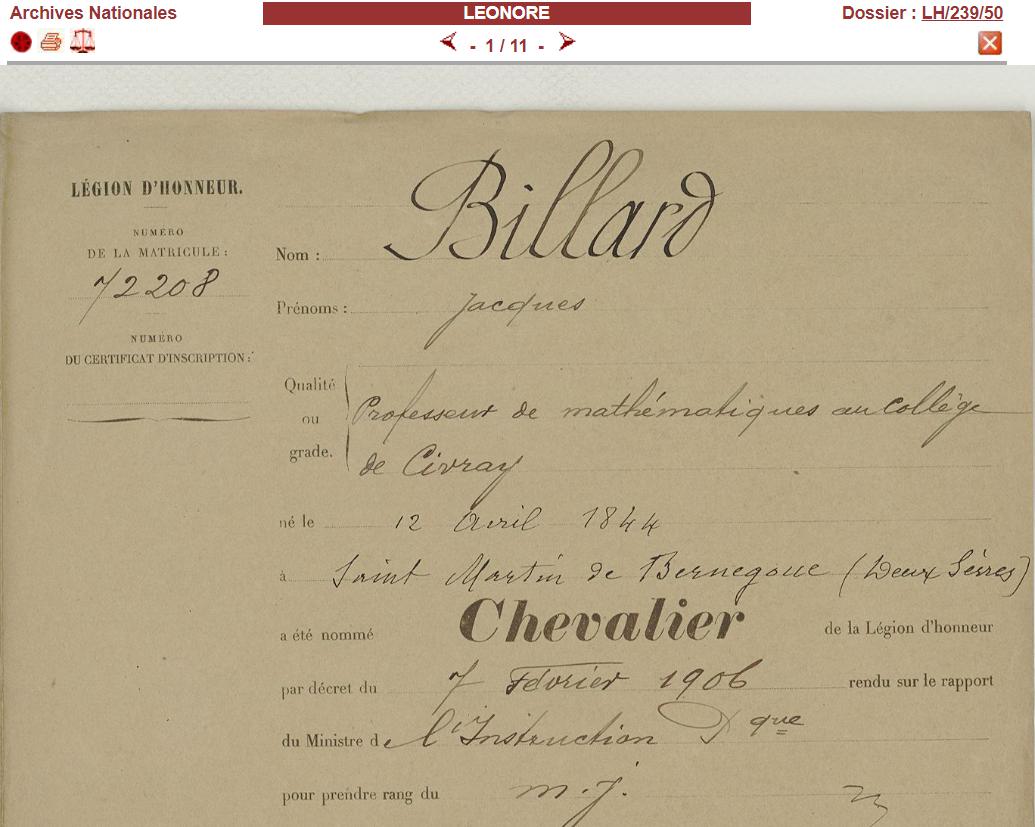 Archives Nationales
LEONORE
Dossier : LH/239/50
- 1 / 11 -
LÉGION D'HONNEUR.
NUMÉRO
DE LA MATRICULE :
72208
NUMÉRO
DU CERTIFICAT D'INSCRIPTION :
Nom : Billard
Prénoms : Jacques
Qualité
ou
grade.
Professeur de mathématiques au Collège
de Civray
né le 12 Avril 1844
à Saint Martin de Bernegoue (Deux Sèvres)
a été nommé Chevalier de la Légion d'honneur
par décret du 7 Février 1906 rendu sur le rapport
du Ministre de l'Instruction Pque
pour prendre rang du m. j.